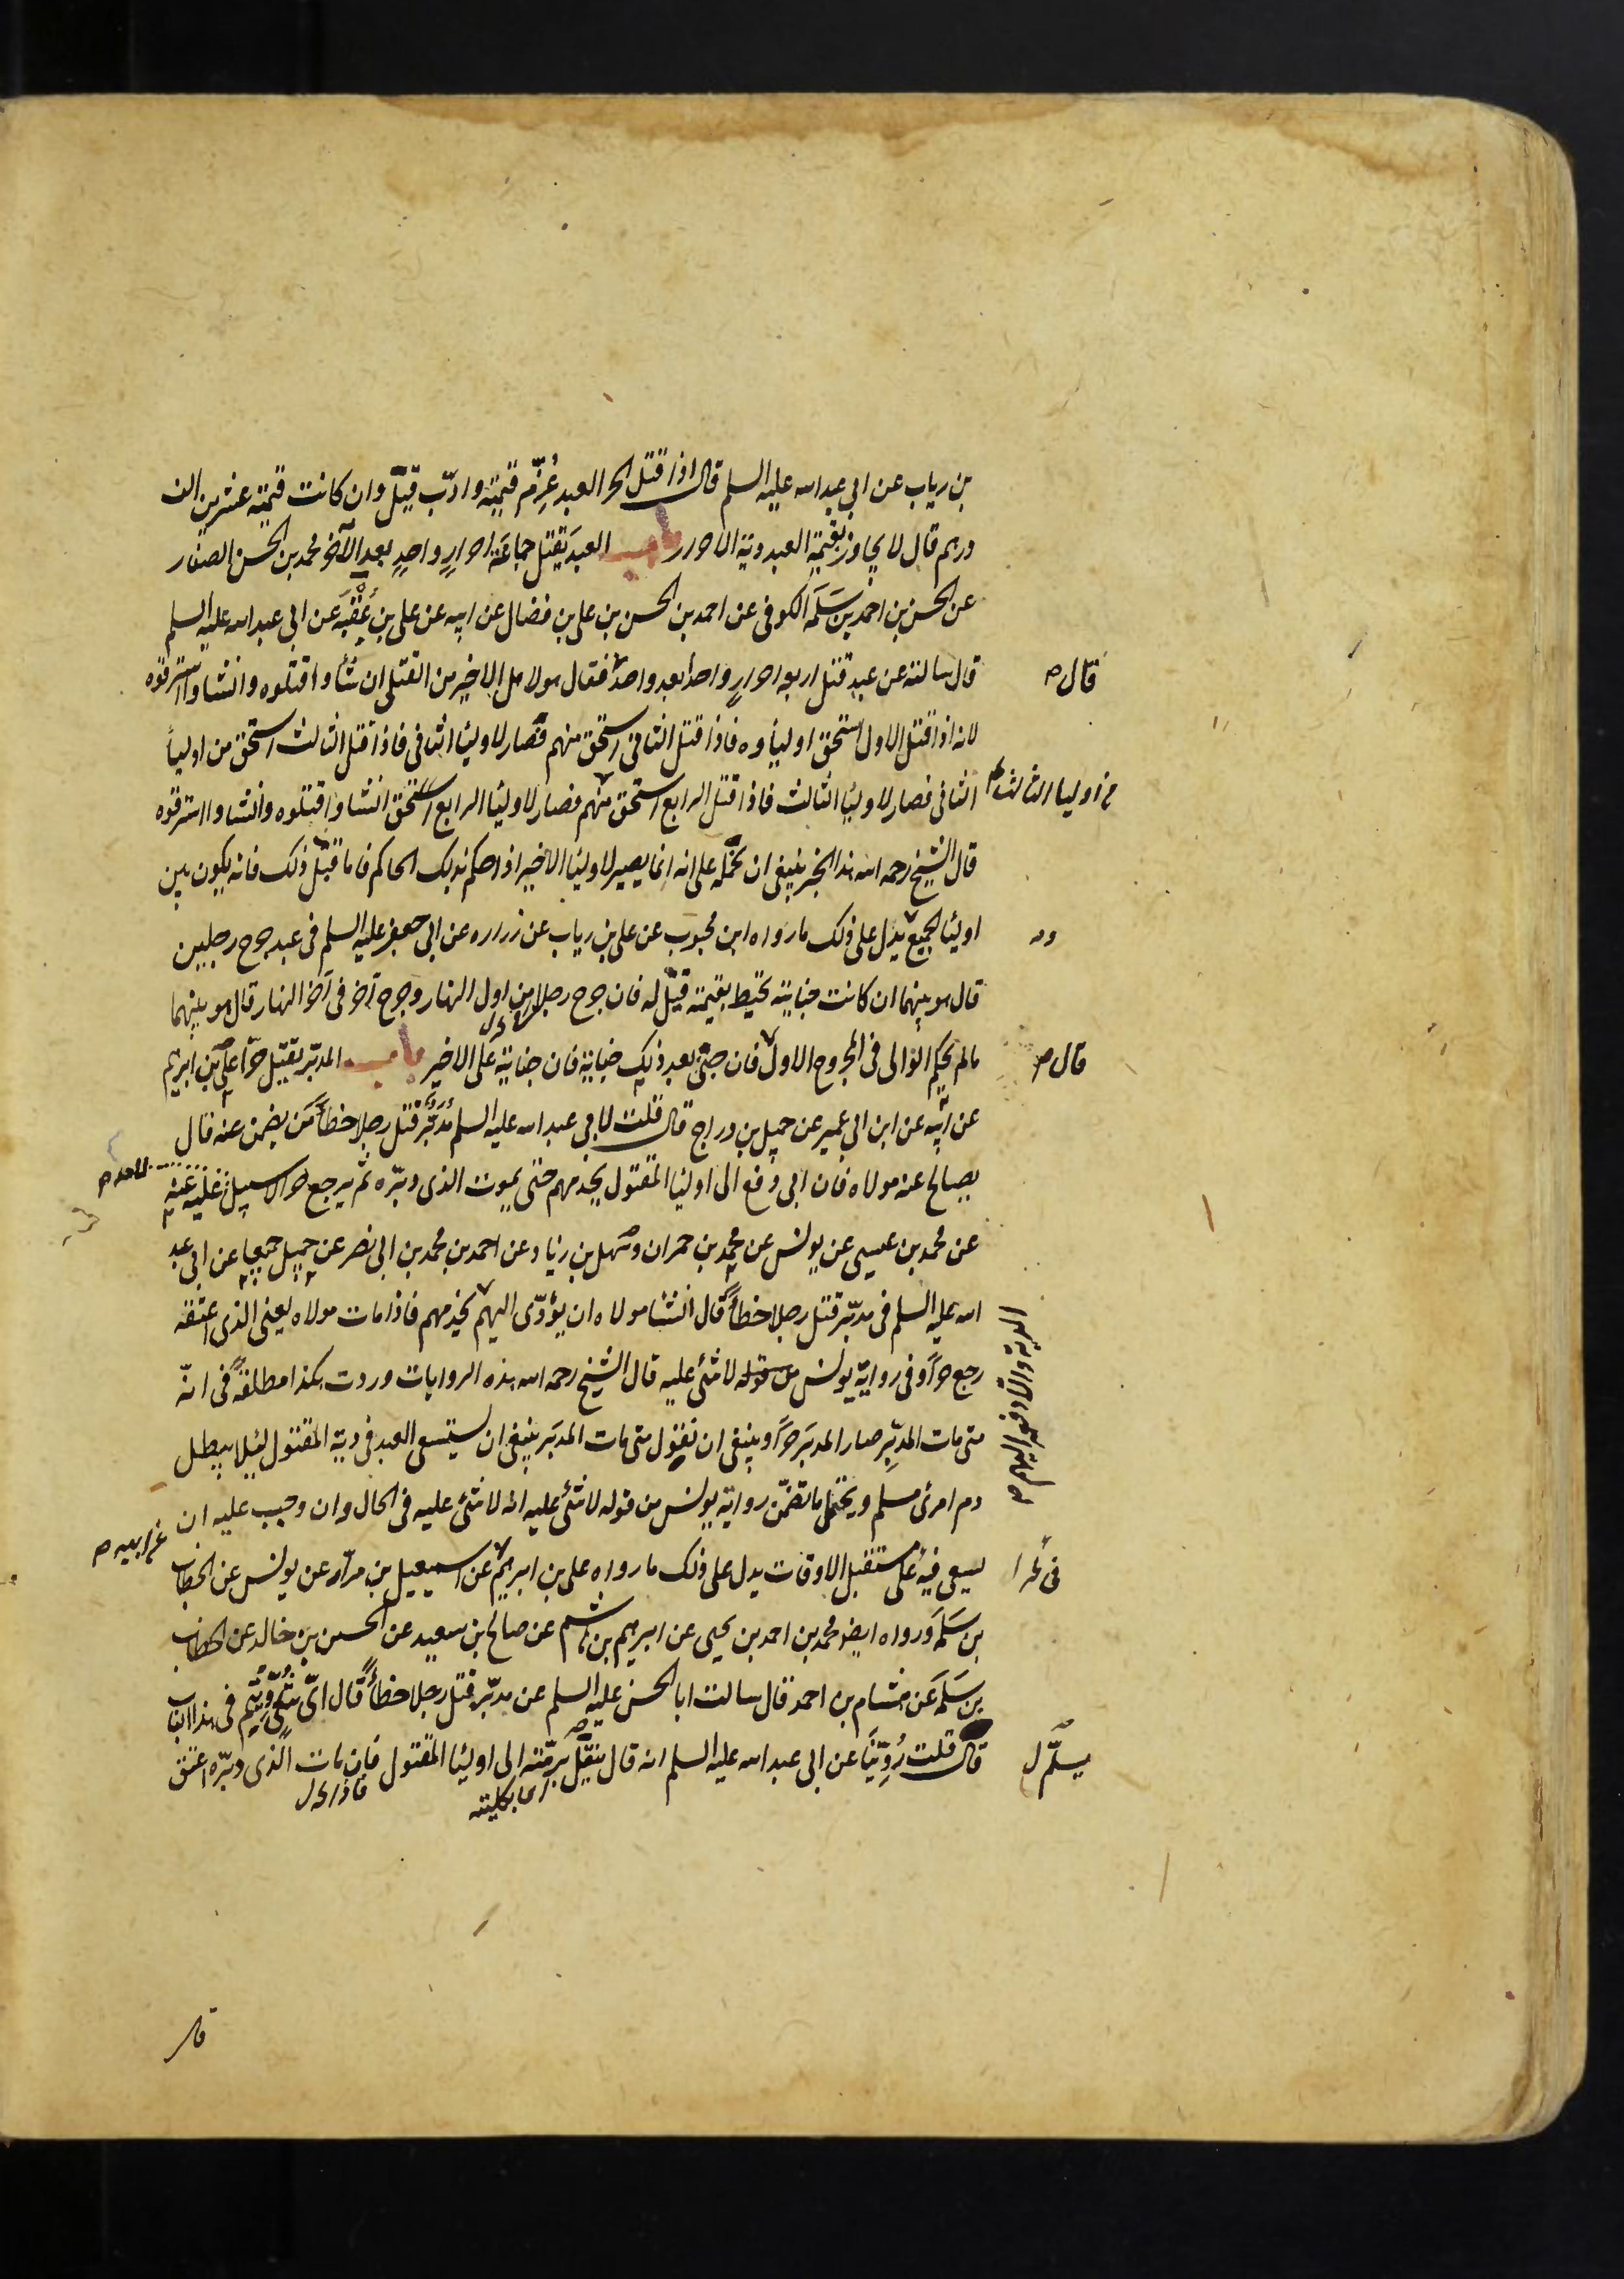 بن رياب عن ابي عبد الله عليه السلم قال اذا قتل الحر العبد غُرِّم قيمته وادّب قيل وان كانت قيمته عشرين الف
درهم قال لا يجاوز بقيمة العبد دية الاحرار باب العبد يقتل جماعة احرارٍ واحدٍ بعد الآخر محمد بن الحسن الصفار
عن الحسن بن احمد بن سَلَمه الكوفى عن احمد بن الحسن بن على بن فضال عن ابيه عن على بن عُقْبَه عن ابى عبد الله عليه السلم
قال سالته عن عبد قتل اربعه احرارٍ واحدا بعد واحد فقال هو لاهل الاخير من القتلى ان شأوا قتلوه وانشاوا استرقوه
قال
لانه اذا قتل الاول استحق اولياوه فاذا قتل الثانى استحق منهم فصار لاوليا الثانى فاذا قتل الثالث استحق من اوليأ
الثانى فصار لاوليا الثالث فاذا قتل الرابع استحق منهم فصار لاوليا الرابع استحق انشاوا قتلوه وانشاوا استرقوه
من اوليا الثالث
قال الشيخ رحمه الله هذا الخبر ينبغى ان نحمله على انه انما يصير لاوليا الاخير اذا حكم بذلك الحاكم فاما قبل ذلك فانه يكون بين
اوليا الجميع يدل على ذلك ما رواه ابن محبوب عن على بن رياب عن زراره عن ابى جعفر عليه السلم فى عبد جرح رجلين
قال هو بينهما ان كانت جنايته تحيط بقيمته قيل له فان جرح رجلا من اول النهار وجرح آخر فى آخر النهار قال هو بينهما
مالم يحكم الوالى فى المجروح الاول فان جنى بعد ذلك جناية فان جنايته على الاخير باب المدبّر يقتل حرّا على بن ابرهيم
قال
عن ابيه عن ابن ابى عمير عن جميل بن دراج قال قلت لابى عبد الله عليه السلم مُدَبَّر قتل رجلا خطأً مَن يضمن عنه قال
يصالح عنه مولاه فان ابى دفع الى اوليا المقتول يخدمهم حتى يموت الذى دبّره ثم يرجع حرا لا سبيل عليه عنه
عن محمد بن عيسى عن يونس عن محمد بن حمران وسهل بن زياد عن احمد بن محمد بن ابى نصر عن جميل جميعا عن ابى عبد
الله عليه السلم فى مدبّر قتل رجلا خطأً قال انشا مولاه ان يؤدّى اليهم يخدمهم فاذا مات مولاه يعنى الذى اعتقه
الدية والا دفعه اليهم
رجع حرًا وفى رواية يونس من قوله لا شئ عليه قال الشيخ رحمه الله هذه الروايات وردت هكذا مطلقةً فى انّه
متى مات المدبِّر صار المدبَر حرًا وينبغى ان نقول متى مات المدبَر ينبغى ان يستسعى العبد فى دية المقتول لئلا يبطل
دم امرئ مسلم ويحتمل ما تضمّن رواية يونس من قوله لا شئ عليه انه لا شئ عليه فى الحال وان وجب عليه ان
يسعى فيه على مستقبل الاوقات يدل على ذلك ما رواه على بن ابرهيم عن اسمعيل بن مرّار عن يونس عن الخطاب
عن ابيه
بن سَلَمَه ورواه ايضا محمد بن احمد بن يحيى عن ابرهيم بن هاشم عن صالح بن سعيد عن الحسين بن خالد عن الخطاب
بن سَلَمَه عن هشام بن احمد قال سالت ابا الحسن عليه السلم عن مدبّر قتل رجلا خطأً قال اىّ شئ رُوّيتم فى هذا الباب
قال قلت رُوّينَا عن ابى عبد الله عليه السلم انه قال يتلّ برمّته الى اوليا المقتول فان مات الذى دبّره اعتق
يسلّم ل
اى بكليته
فاذا